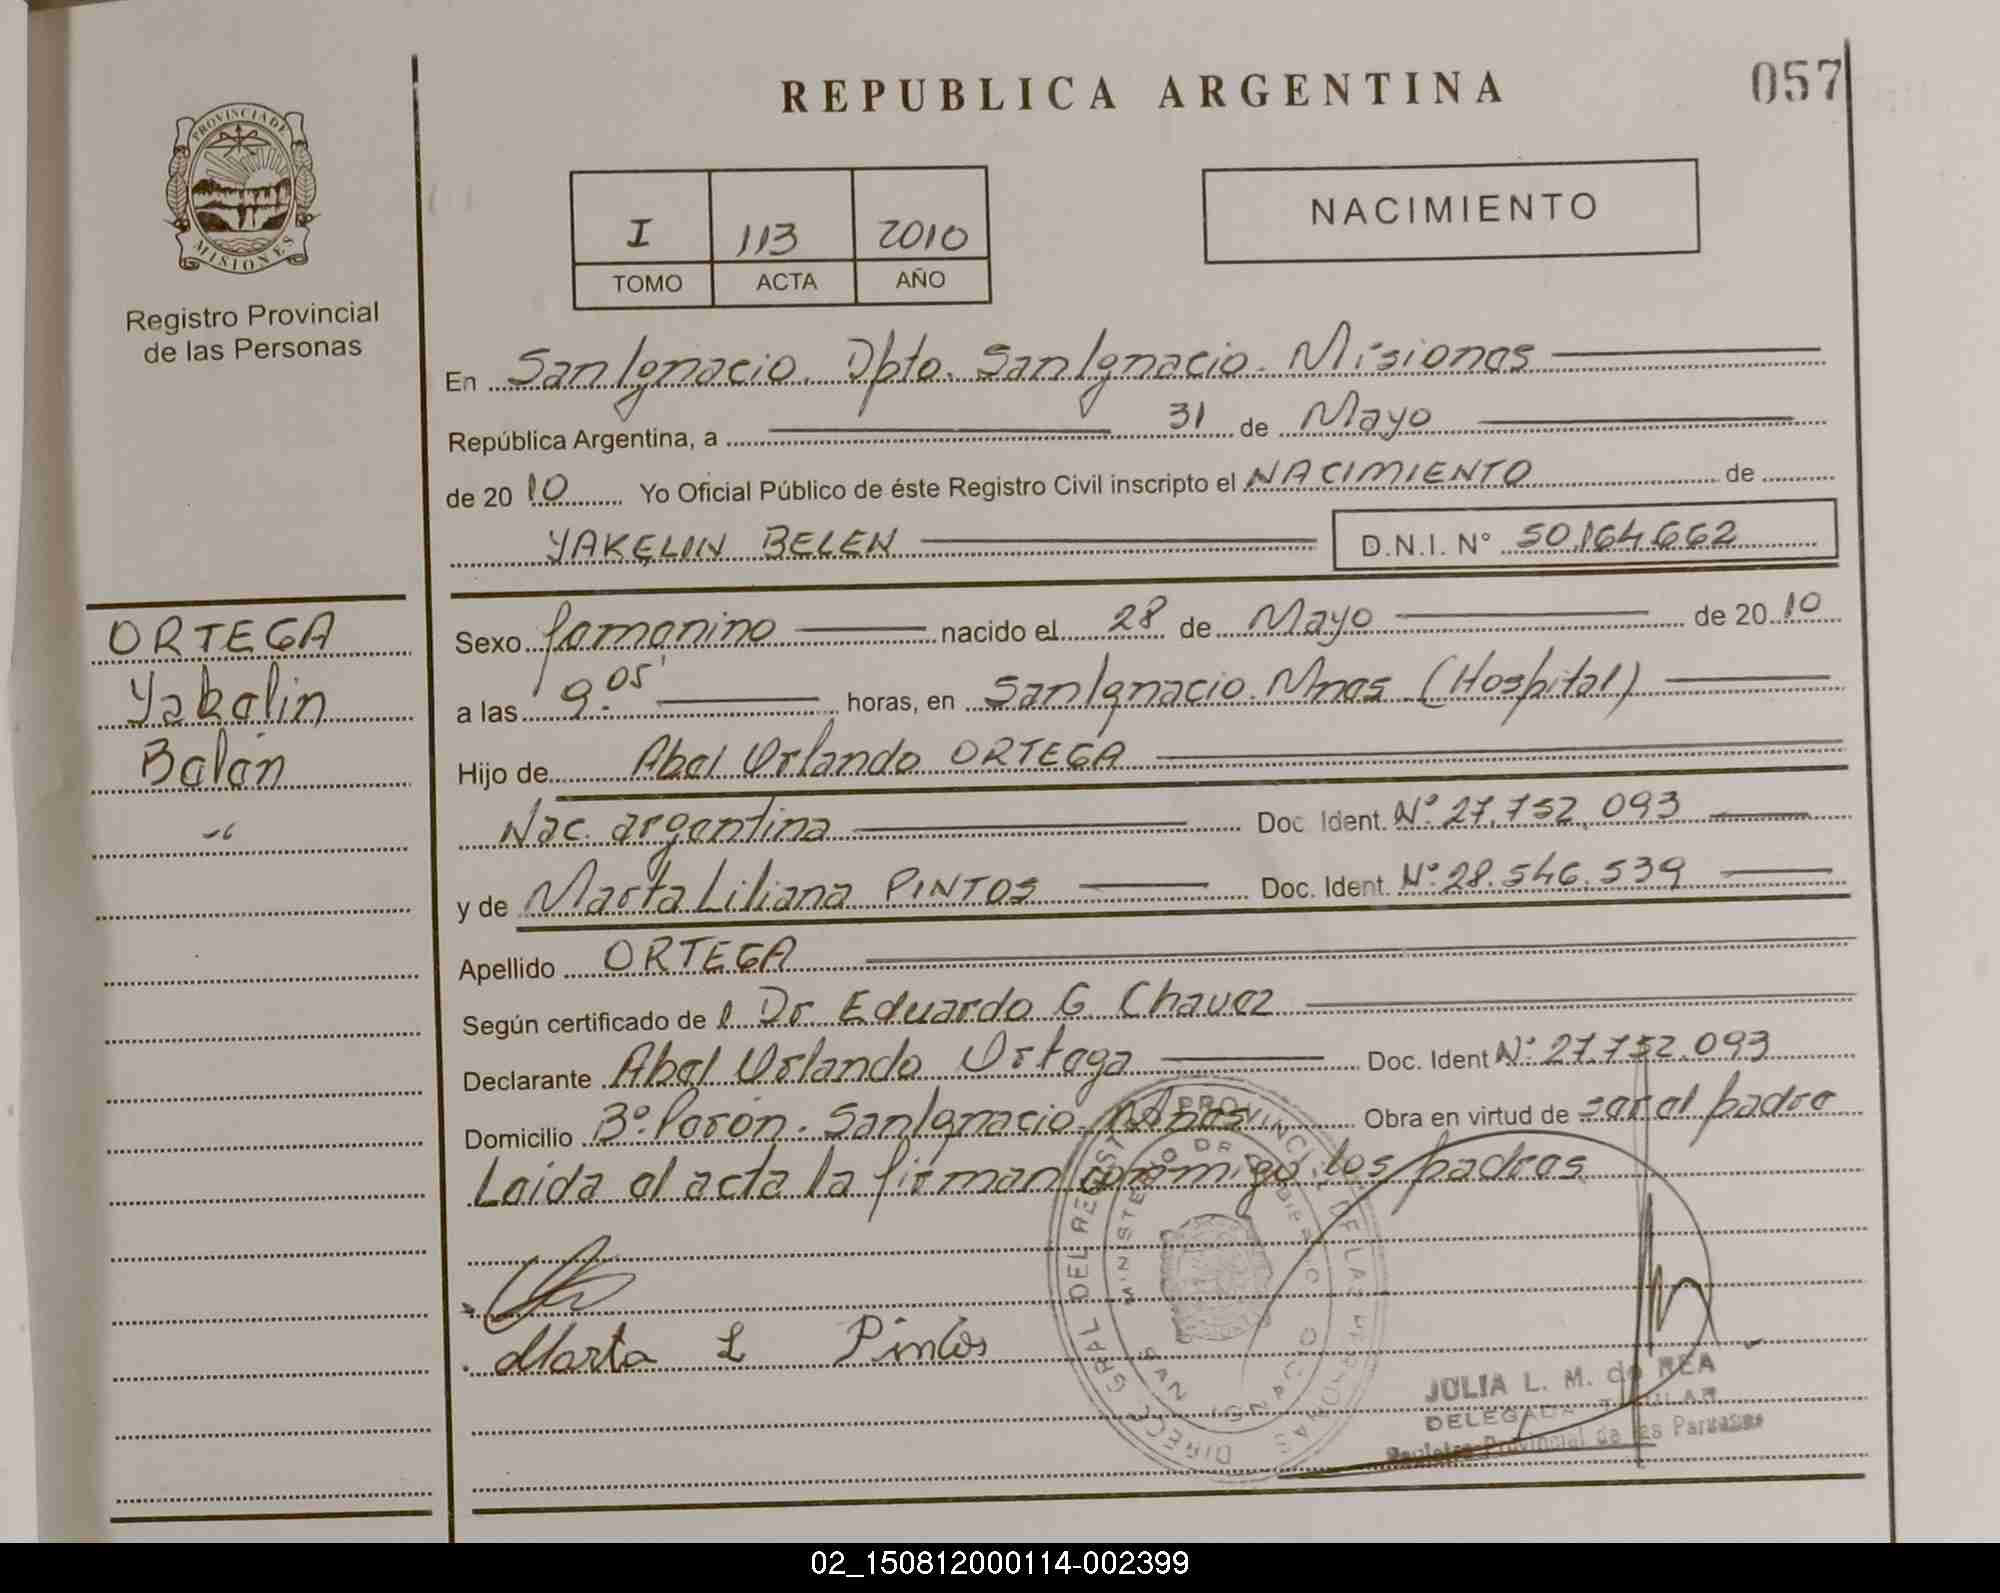 REPUBLICA ARGENTINA
057
PROVINCIA DE
MISIONES
Registro Provincial
de las Personas
I 113 2010
TOMO ACTA AÑO
NACIMIENTO
En San Ignacio. Dpto. San Ignacio. Misiones
República Argentina, a 31 de Mayo
de 20 10 Yo Oficial Público de éste Registro Civil inscripto el NACIMIENTO de
YAKELIN BELEN D.N.I. N° 50.164.662
ORTEGA
Yakelin
Belén
Sexo femenino nacido el 28 de Mayo de 20 10
a las 9.05' horas, en San Ignacio. Mnes (Hospital)
Hijo de Abel Orlando ORTEGA
Nac. argentina Doc Ident. N° 27.752.093
y de Marta Liliana PINTOS Doc. Ident. N° 28.546.539
Apellido ORTEGA
Según certificado de l Dr Eduardo G Chavez
Declarante Abel Orlando Ortega Doc. Ident N° 27.752.093
Domicilio B° Perón. San Ignacio. Mnes Obra en virtud de ser el padre
Leida el acta la firman conmigo los padres
Marta L Pintos
JULIA L. M. de REA
DELEGADA TITULAR
Registro Provincial de las Personas
02_150812000114-002399